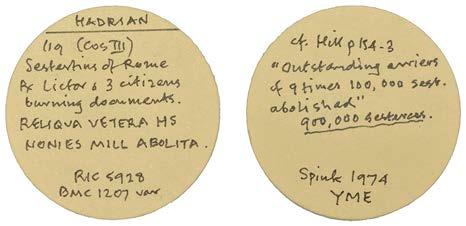 HADRIAN
119 (COS III)
Sestertius of Rome
Rx Lictor & 3 citizens
burning documents.
RELIQUA VETERA HS
NONIES MILL ABOLITA.
RIC 592B
BMC 1207 var
cf. Hill p 154-3
"Outstanding arriers
of 9 times 100,000 sest.
abolished"
900,000 sestarces.
Spink 1974
YME